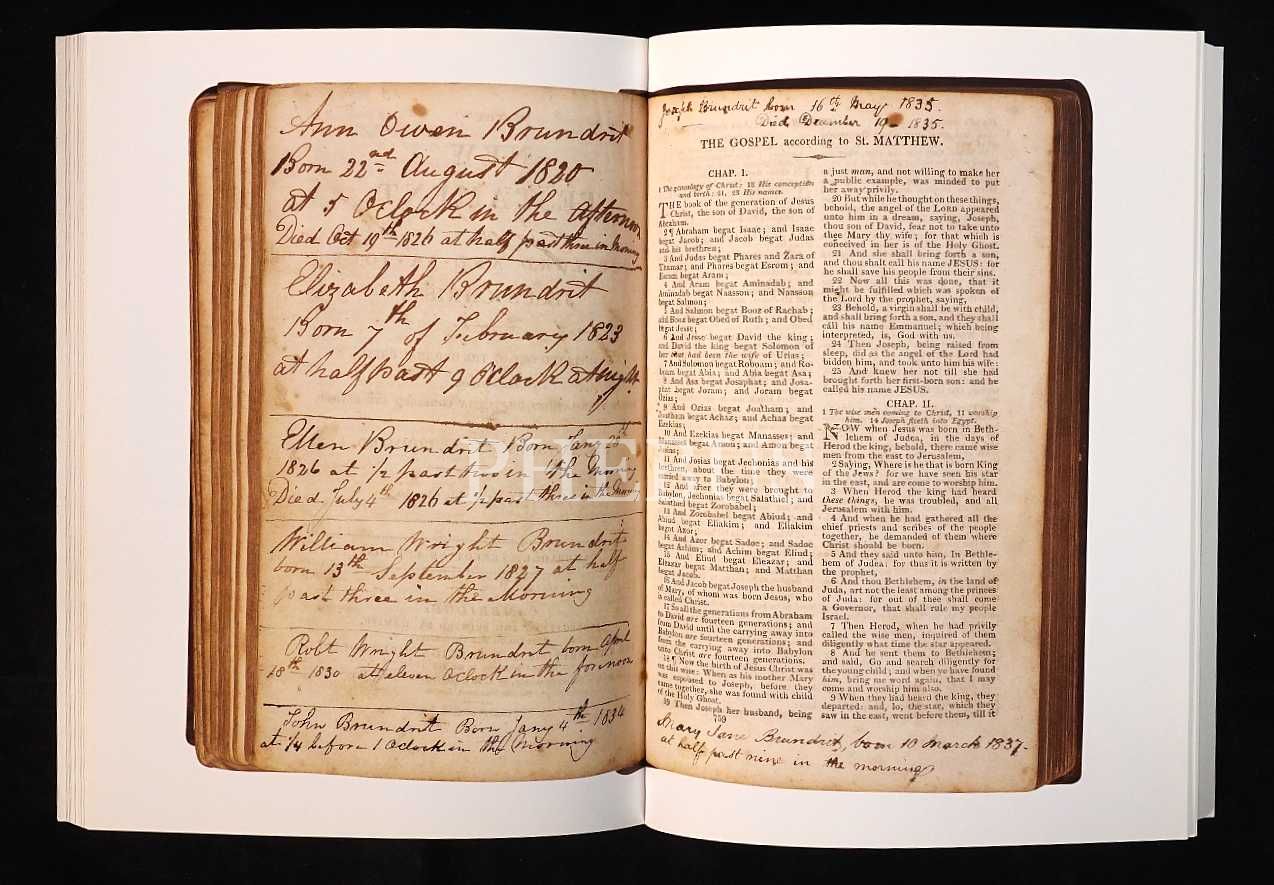 Ann Owen Brundrit
Born 22nd August 1820
at 5 Oclock in the Afternoon
Died Oct 19th 1826 at half past three in Morning
Elizabeth Brundrit
Born 7th of February 1823
at half past 9 oClock at night
Ellen Brundrit Born Jany
1826 at 1/2 past two in the Morning
Died July 4th 1826 at 1/2 past three in the Morning
William Wright Brundrit
born 13th September 1827 at half
past three in the Morning
Robt Wright Brundrit born April
18th 1830 at eleven Oclock in the forenoon
John Brundrit Born Jany 4th 1834
at 1/4 before 1 Oclock in the Morning
Joseph Brundrit born 16th May 1835.
Died December 19 1835.
THE GOSPEL according to St. MATTHEW.
CHAP. I.
1 The genealogy of Christ: 18 His conception
and birth: 21, 23 His names.
THE book of the generation of Jesus
Christ, the son of David, the son of
Abraham.
2 ¶ Abraham begat Isaac; and Isaac
begat Jacob; and Jacob begat Judas
and his brethren;
3 And Judas begat Phares and Zara of
Thamar; and Phares begat Esrom; and
Esrom begat Aram;
4 And Aram begat Aminadab; and
Aminadab begat Naasson; and Naasson
begat Salmon;
5 And Salmon begat Booz of Rachab;
and Booz begat Obed of Ruth; and Obed
begat Jesse;
6 And Jesse begat David the king;
and David the king begat Solomon of
her that had been the wife of Urias;
7 And Solomon begat Roboam; and Ro-
boam begat Abia; and Abia begat Asa;
8 And Asa begat Josaphat; and Josa-
phat begat Joram; and Joram begat
Ozias;
9 And Ozias begat Joatham; and
Joatham begat Achaz; and Achaz begat
Ezekias;
10 And Ezekias begat Manasses; and
Manasses begat Amon; and Amon begat
Josias;
11 And Josias begat Jechonias and his
brethren, about the time they were
carried away to Babylon;
12 And after they were brought to
Babylon, Jechonias begat Salathiel; and
Salathiel begat Zorobabel;
13 And Zorobabel begat Abiud; and
Abiud begat Eliakim; and Eliakim
begat Azor;
14 And Azor begat Sadoc; and Sadoc
begat Achim; and Achim begat Eliud;
15 And Eliud begat Eleazar; and
Eleazar begat Matthan; and Matthan
begat Jacob.
16 And Jacob begat Joseph the husband
of Mary, of whom was born Jesus, who
is called Christ.
17 So all the generations from Abraham
to David are fourteen generations; and
from David until the carrying away into
Babylon are fourteen generations; and
from the carrying away into Babylon
unto Christ are fourteen generations.
18 ¶ Now the birth of Jesus Christ was
on this wise: When as his mother Mary
was espoused to Joseph, before they
came together, she was found with child
of the Holy Ghost.
19 Then Joseph her husband, being
a just man, and not willing to make her
a public example, was minded to put
her away privily.
20 But while he thought on these things,
behold, the angel of the LORD appeared
unto him in a dream, saying, Joseph,
thou son of David, fear not to take unto
thee Mary thy wife; for that which is
conceived in her is of the Holy Ghost.
21 And she shall bring forth a son,
and thou shalt call his name JESUS: for
he shall save his people from their sins.
22 Now all this was done, that it
might be fulfilled which was spoken of
the Lord by the prophet, saying,
23 Behold, a virgin shall be with child,
and shall bring forth a son, and they shall
call his name Emmanuel; which being
interpreted, is, God with us.
24 Then Joseph, being raised from
sleep, did as the angel of the Lord had
bidden him, and took unto him his wife:
25 And knew her not till she had
brought forth her first-born son: and he
called his name JESUS.
CHAP. II.
1 The wise men coming to Christ, 11 worship
him. 14 Joseph fleeth into Egypt.
NOW when Jesus was born in Beth-
lehem of Judea, in the days of
Herod the king, behold, there came wise
men from the east to Jerusalem,
2 Saying, Where is he that is born King
of the Jews? for we have seen his star
in the east, and are come to worship him.
3 When Herod the king had heard
these things, he was troubled, and all
Jerusalem with him.
4 And when he had gathered all the
chief priests and scribes of the people
together, he demanded of them where
Christ should be born.
5 And they said unto him, In Bethle-
hem of Judea: for thus it is written by
the prophet,
6 And thou Bethlehem, in the land of
Juda, art not the least among the princes
of Juda: for out of thee shall come
a Governor, that shall rule my people
Israel.
7 Then Herod, when he had privily
called the wise men, inquired of them
diligently what time the star appeared.
8 And he sent them to Bethlehem;
and said, Go and search diligently for
the young child; and when ye have found
him, bring me word again, that I may
come and worship him also.
9 When they had heard the king, they
departed: and, lo, the star, which they
saw in the east, went before them, till it
759
Mary Jane Brundrit, born 10 March 1837-
at half past nine in the morning